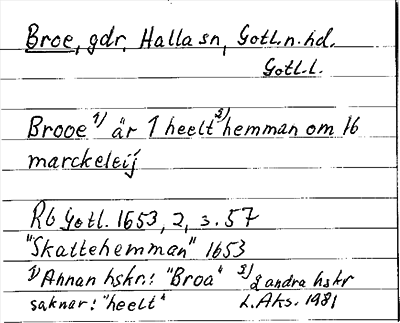 Broe, gdr, Halla sn, Gotl.n.hd.
Gotl.l.
Brooe 1) är 1 heelt 2) hemman om 16
marckeleij
Rb Gotl. 1653, 2, s. 57
"Skattehemman" 1653
1) Annan hskr.: "Broa" 2) 2 andra hskr
saknar: "heelt" L.Aks. 1981